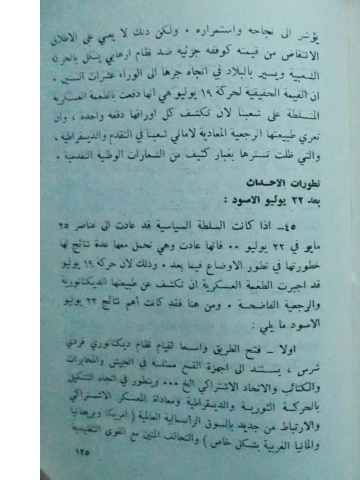 يؤشر الى نجاحه واستمراره • ولكن ذلك لا يعني على الاطلاق
الانتقاص من قيمته كوقفه جزئيه ضد نظام ارهابي ينكل بالحركة
الشعبية ويسير بالبلاد في اتجاه جرها الى الوراء عشرات السنين •
ان القيمة الحقيقية لحركة ١٩ يوليو هي انها دفعت بالطغمة العسكرية
المتسلطة على شعبنا لان تكشف كل اوراقها دفعه واحدة ، وان
تعري طبيعتها الرجعية المعادية لاماني شعبنا في التقدم والديمقراطية ،
والتي ظلت تسترها بغبار كثيف من الشعارات الوطنية التقدمية •
تطورات الاحداث
بعد ٢٢ يوليو الاسود :
٤٥ـ اذا كانت السلطة السياسية قد عادت الى عناصر ٢٥
مايو في ٢٢ يوليو •• فانها عادت وهي تحمل معها عدة نتائج لها
خطورتها في تطور الاوضاع فيما بعد • وذلك لان حركة ١٩ يوليو
قد اجبرت الطغمة العسكرية ان تكشف عن طبيعتها الديكتاتورية
والرجعية الفاضحة • ومن هنا فقد كانت أهم نتائج ٢٢ يوليو
الاسود ما يلي :
اولا ـ فتح الطريق واسعا لقيام نظام ديكتاتوري فردي
شرس ، يستند الى اجهزة القمع ممثلة في الجيش والمخابرات
والكتائب والاتحاد الاشتراكي الخ ••• ويتطور في اتجاه التنكيل
بالحركة الثورية والديمقراطية ومعاداة المعسكر الاشتراكي
والارتباط من جديد بالسوق الراسمالية العالمية ( امريكا وبريطانيا
والمانيا الغربية بشكل خاص ) والتحالف المتين مع القوى التقليدية
١٢٥